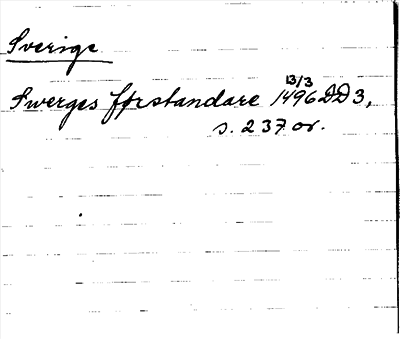 Sverige
Swerges förstandare 13/3 1496 DD 3,
s. 237 or.